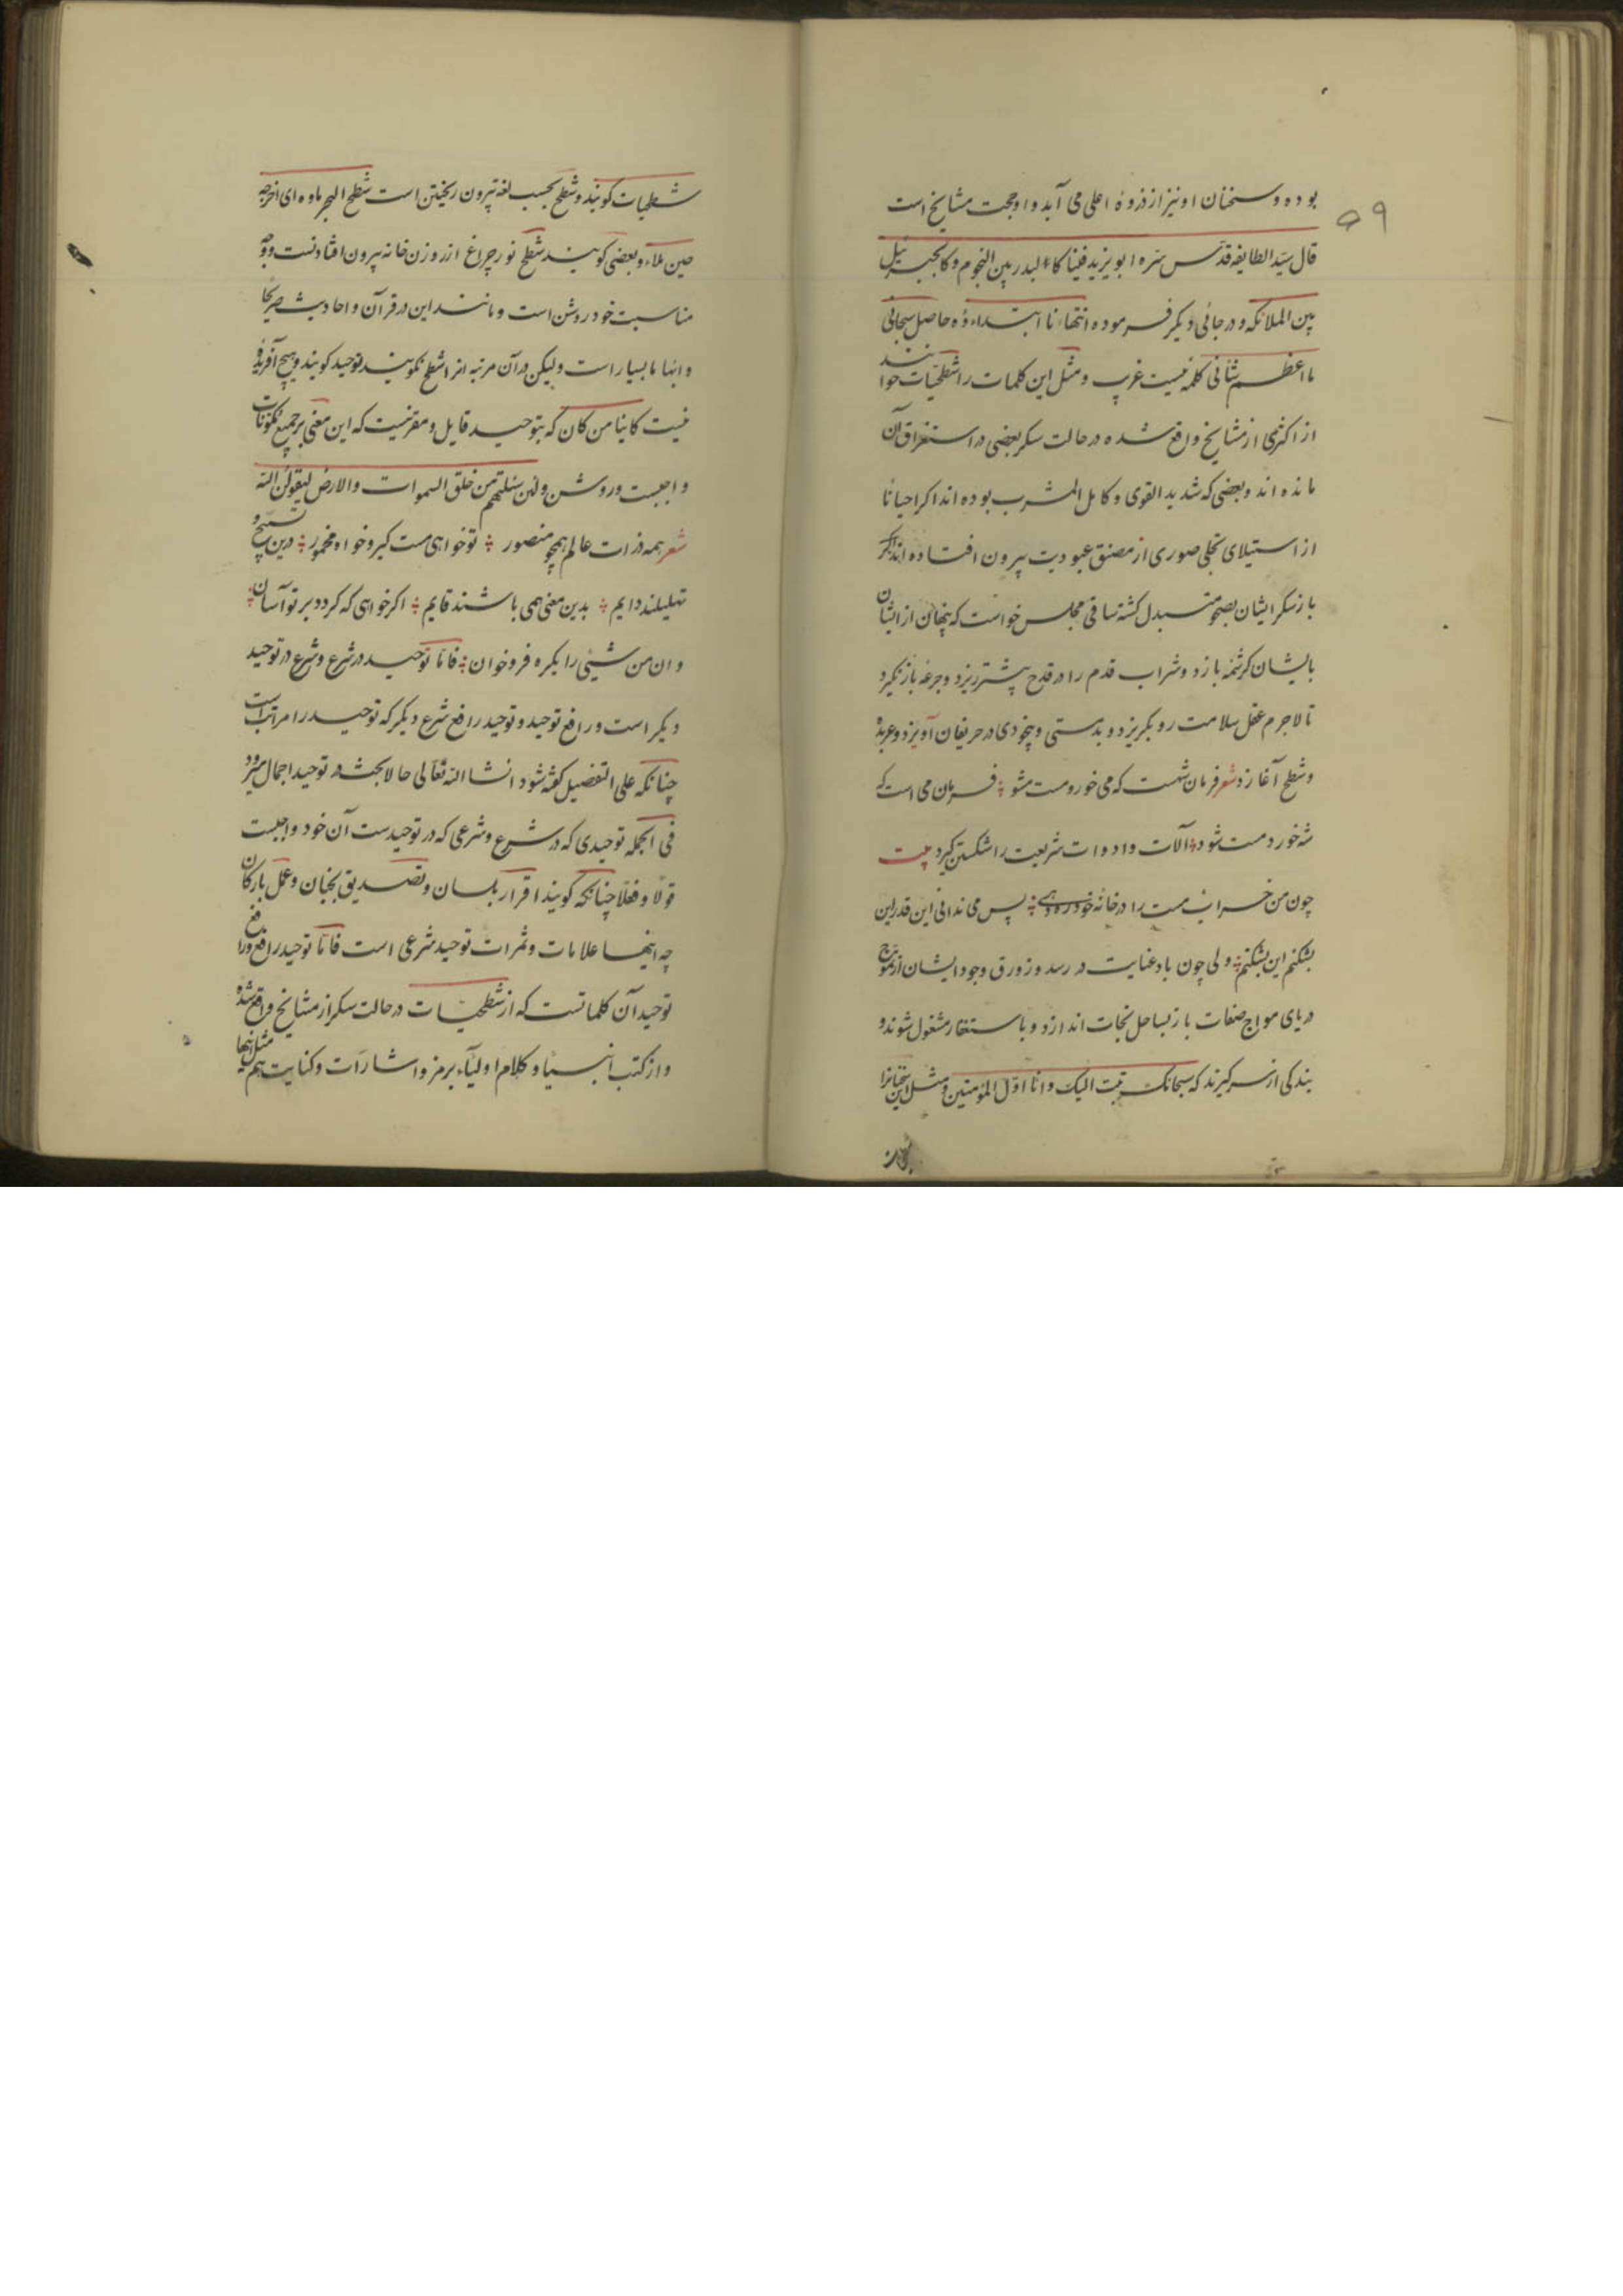 ۵۹
بوده و سخنان او نیز از ذروهٔ اعلی می آید و او حجت مشایخ است
قال سید الطایفه قدس سره ابو یزید فینا کالبدر بین النجوم و کجبرئیل
بین الملائکه و در جائی دیگر فرموده انتهاءنا ابتداءوه حاصل سبحانی
ما اعظم شانی کلمه نیست غریب و مثل این کلمات را شطحیات خوانند
از اکثری از مشایخ واقع شده در حالت سکر بعضی در استغراق آن
مانده اند و بعضی که شدید القوی و کامل المشرب بوده اند اگر احیانا
از استیلای تجلی صوری از مضیق عبودیت بیرون افتاده اند اگر
باز سکر ایشان بصحو متبدل گشته ساقی مجلس خواست که پنهان از ایشان
بایشان کرشمه بازد و شراب قدم را در قدح پیشتر ریزد و جرعه باز نگیرد
تا لاجرم عقل سلامت رو بگریزد و بدمستی و بیخودی در حریفان آویزد و عربده
و شطح آغازد شعر فرمان شهست که می خور و مست مشو ؛ فرمان می است که
شه خورد مست شود ؛ آلات و ادوات شریعت را شکستن گیرد بیت
چون من خراب مست را در خانهٔ خود ره دهی ؛ پس می ندانی این قدر این
بشکنم این بشکنم ؛ ولی چون باد عنایت در رسد و زورق وجود ایشان از تموج
دریای مواج صفات باز بساحل نجات اندازد و باستغفار مشغول شوند و
بندگی از سر گیرند که سبحانک تبت الیک و انا اول المؤمنین و مثل این سخنانرا
شطحیات گویند و شطح بحسب لغة بیرون ریختن است شطح البحر ماوه ای اخرجه
حین ملاء و بعضی گویند شطح نور چراغ از روزن خانه بیرون افتادنست و وجه
مناسبت خود روشن است و مانند این در قرآن و احادیث صریحا
و ایهاما بسیار است ولیکن در آن مرتبه انرا شطح نگویند توحید گویند و هیچ آفریده
نیست کاینا من کان که بتوحید قایل و مقر نیست که این معنی بر جمیع مکونات
واجبست و روشن و لئن سئلتهم من خلق السموات والارض لیقولن الله
شعر همه ذرات عالم همچو منصور ؛ تو خواهی مست گیر و خواه مخمور ؛ درین تسبیح و
تهلیلند دایم ؛ بدین معنی همی باشند قایم ؛ اگر خواهی که گردد بر تو آسان ؛
و ان من شیئی را یکره فرو خوان ؛ فاما توحید در شرع و شرع در توحید
دیگر است و رافع توحید و توحید رافع شرع دیگر که توحید را مراتب است
چنانکه علی التفضیل گفته شود انشا الله تعالی حالا بحث در توحید اجمال میرود
فی الجمله توحیدی که در شرع و شرعی که در توحیدست آن خود واجبست
قولا و فعلا چنانکه گویند اقرار بلسان و تصدیق بجنان و عمل بارکان
چه اینها علامات و ثمرات توحید شرعی است فاما توحید رافع و رافع
توحید آن کلماتست که از شطحیات در حالت سکر از مشایخ واقع شده
و از کتب انبیا و کلام اولیاء برمز و اشارات و کنایت هم مثل اینها